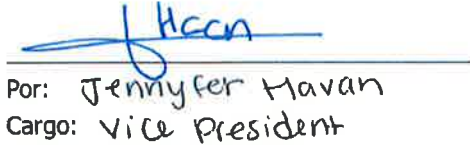 Por: Jennyfer Havan
Cargo: Vice President